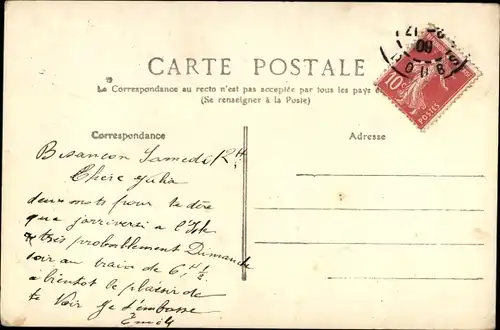 CARTE POSTALE
La Correspondance au recto n'est pas acceptée par tous les pays
(Se renseigner à la Poste)
Correspondance
Adresse
10c
POSTES
09
Besançon Samedi 12H
Chère
deux mots pour te dire
que j'arriverai a l'Isle
très probablement Dimanche
soir au train de 6H ½
a bientot le plaisir de
te voir Je t'embrasse